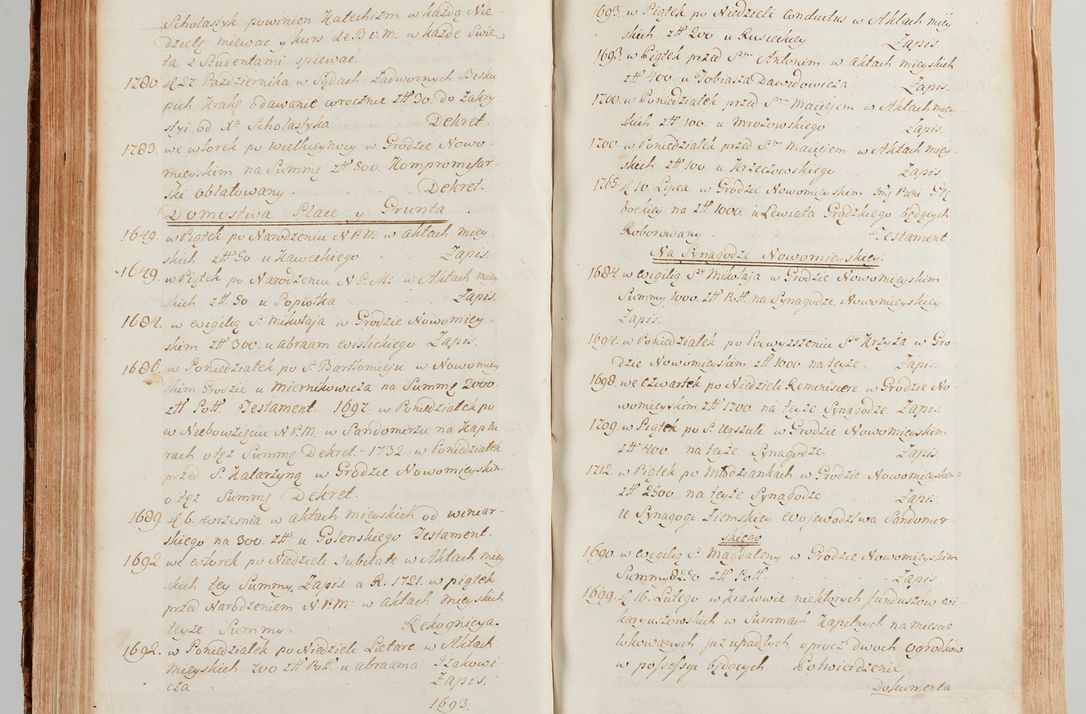 Scholastyk powinien Katechizm w każdą Nie-
dzielę miewać y kurs de B.V.M. w każde Swię-
ta z Studentami spiewać.
1780. d. 27. Pazdziernika w Sądach Zadwornych Bisku
pich Krakę. oddawanie wrocznie zł# 30. do Zakry-
styi od Xa Scholastyka Dekret.
1783. we wtorek po Wielkieynocy w Grodzie Nowo-
mieyskim na Summę zł# 500. Kompromisar-
ski oblatowany. Dekret.
Domostwa Place y Grunta
1649. w Piątek po Narodzeniu N.P.M. w aktach miey-
skich zł# 50 u Kaweckiego Zapis.
1649. w Piątek po Narodzeniu N.P.M. w Aktach miey
skich zł# 50 u Popiołka Zapis.
1684. w wigilią S. Mikołaja w Grodzie Nowomiey-
skim zł# 300. u abraam Zapis.
1686. w Poniedziałek po S. Bartłomieju w Nowomiey
skim Grodzie u Miernikowicza na Summę 2000.
zł# Pol# Testament. 1692. w Poniedziałek po
w Niebowzięciu N.P.M. w Sandomirzu na Kaptu
rach o tęż Summę Dekret. - 1732. w Poniedziałek
przed S. Katarzyną w Grodzie Nowomieyskim
o tęż Summę Dekret.
1689. d. 6. Września w aktach mieyskich od winiar-
skiego na 300. zł# u Golenskiego Testament.
1692 we wtorek po Niedziele Jubilate w Aktach miey
skich tey Summy Zapis. a R. 1721. w piątek
przed Narodzeniem N.P.M. w aktach mieyskich
teyże Summy. Rekognicya.
1692. w Poniedziałek po Niedziele Laetare w Aktach
mieyskich 200 zł# Pol# u abrahma Izakowi
cza Zapis.
1693.
1693. w Piątek po Niedzieli Conductus w Aktach miey
skich zł# 200 u Rusieckiey Zapis.
1693. w Piątek przed Stm Antonim w aktach mieyskich
zł# 400. u Tobiasza Dawidowicza. Zapis.
1700. w Poniedziałek przed Stm Maciejem w Aktach miey-
skich zł# 100. u Mrozowskiego Zapis.
1700. w Poniedziałek przed Stm Maciejem w Aktach miey-
skich zł# 100. u Krzeczowskiego Zapis.
1765. d. 10. Lipca w Grodzie Nowomieyskim Pani Głę
bockiey na zł# 1000. u Lewiata Grodzkiego będących
Roborowany. Testament
Na Synagodze Nowomieyskiey.
1684. w wigilią Sgo Mikołaja w Grodzie Nowomieyskim
Summy 1000. zł# Pol#. na Synagodze Nowomieyskiey
Zapis.
1692. w Poniedziałek po Podwyższeniu Sgo Krzyża w Gro-
dzie Nowomieyskim zł# 1000. na teyże. Zapis.
1698. we Czwartek po Niedziele Reminiscere w Grodzie No-
womieyskim zł# 1700. na teyże Synagodze. Zapis.
1709. w Piątek po S. Urszuli w Grodzie Nowomieyskim
zł# 400. na teyże Synagodze. Zapis.
1712. w Piątek po Młodziankach w Grodzie Nowomieyskim
zł# 2500. na teyże Synagodze Zapis.
U Synagogi Ziemskiey Woiewodztwa Sandomir-
skiego
1690. w wigilią S. Magdaleny w Grodzie Nowomieyskim
Summy 8250. zł# Pol#. Zapis.
1699. d. 16. Lutego w Krakowie niektorych funduszow wi-
karyuszowskich w Summach Kapitnych na miescie
lokowanych już upadłych oprocz dwoch Ogrodkow
w possessyi będących Potwierdzenie.
Dokumenta